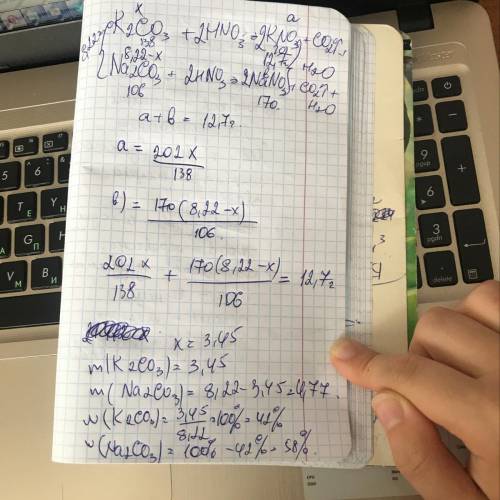 x a
8,22г K2CO3 + 2HNO3 = 2KNO3 + CO2↑ +
138 12,7г H2O
8,22-x
Na2CO3 + 2HNO3 = 2NaNO3 + CO2↑ +
106 170 H2O
a + b = 12,7г
a = 202x / 138
b) = 170(8,22-x) / 106
202x / 138 + 170(8,22-x) / 106 = 12,7г
x = 3,45
m(K2CO3) = 3,45
m(Na2CO3) = 8,22-3,45=4,77.
w(K2CO3) = 3,45 / 8,22 = 100% = 42%
w(Na2CO3) = 100% - 42% = 58%